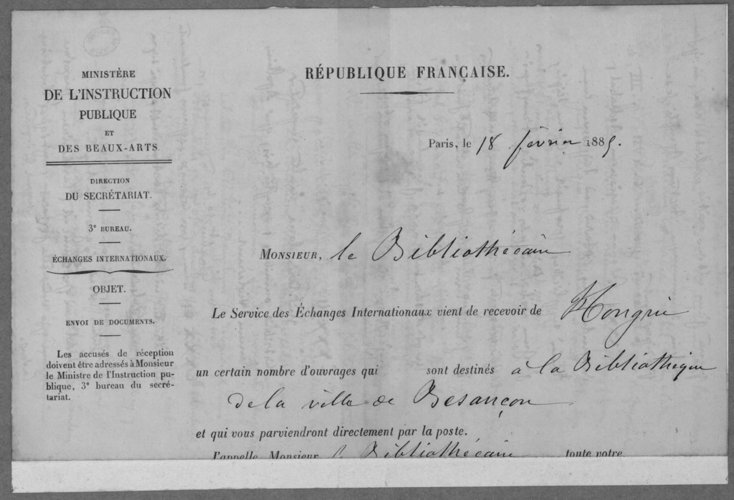 MINISTÈRE
DE L'INSTRUCTION
PUBLIQUE
ET
DES BEAUX-ARTS
DIRECTION
DU SECRÉTARIAT.
3e BUREAU.
ÉCHANGES INTERNATIONAUX.
OBJET.
ENVOI DE DOCUMENTS.
Les accusés de réception
doivent être adressés à Monsieur
le Ministre de l'Instruction pu-
blique, 3e bureau du secré-
tariat.
RÉPUBLIQUE FRANÇAISE.
Paris, le 18 février 1885.
MONSIEUR, le Bibliothécaire
Le Service des Échanges Internationaux vient de recevoir de Hongrie
un certain nombre d'ouvrages qui sont destinés à la Bibliothèque
de la ville de Besançon
et qui vous parviendront directement par la poste.
J'appelle, Monsieur le Bibliothécaire toute votre